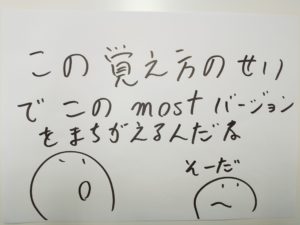 この覚え方のせい
でこのmostバージョン
をまちがえるんだな
そーだ